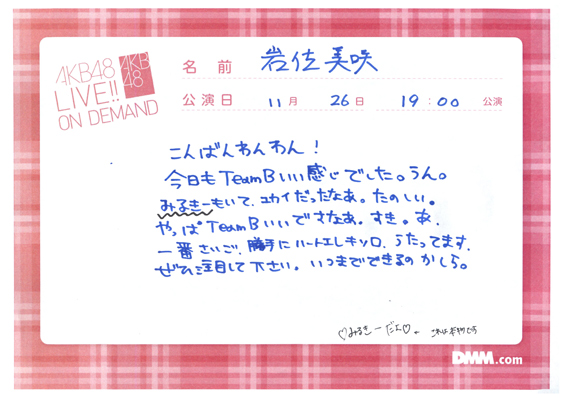 AKB48
LIVE!!
ON DEMAND
AKB
48
名前 岩佐美咲
公演日 11月 26日 19:00 公演
こんばんわんわん!
今日もTeamBいい感じでした。うん。
みるきーもいて、ユカイだったなあ。たのしい。
やっぱTeamBいいですなあ。すき。あ、
一番さいご、勝手にハートエレキソロ、うたってます。
ぜひ注目して下さい。いつまでできるのかしら。
♡みるきーだよ♡。
DMM.com